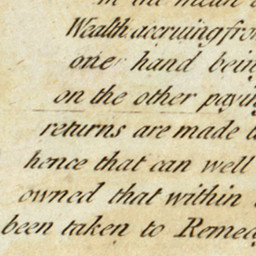 in the mean
Wealth accruing from
one hand being
on the other paying
returns are made
hence that can well
owned that within
been taken to Remedy